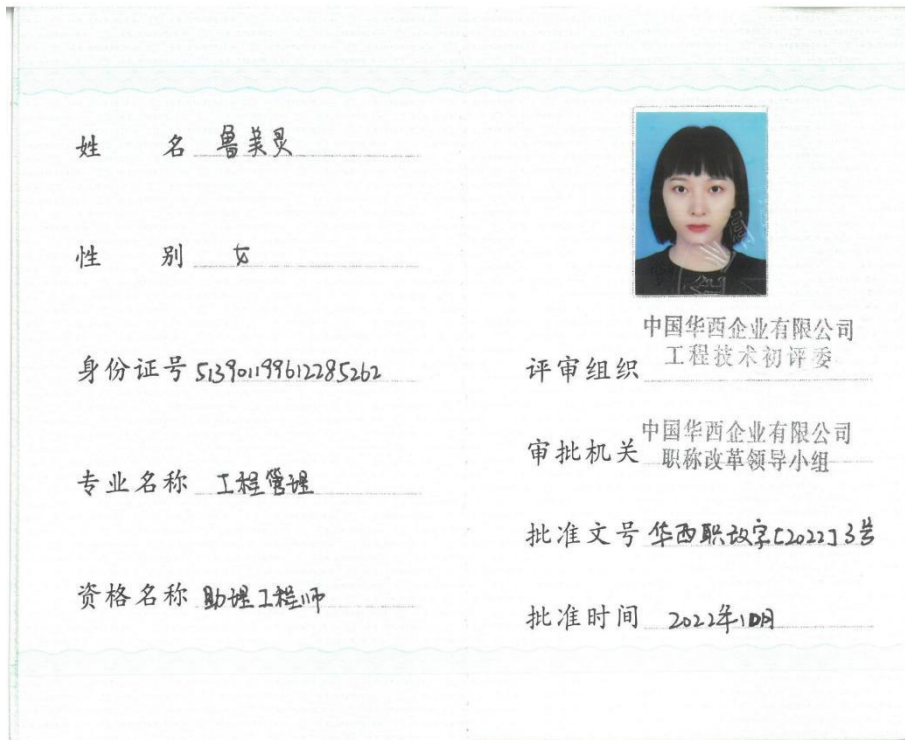 姓 名 鲁美灵
性 别 女
身份证号 513901199612285262
专业名称 工程管理
资格名称 助理工程师
中国华西企业有限公司
评审组织 工程技术初评委
中国华西企业有限公司
审批机关 职称改革领导小组
批准文号 华西职改字[2022]3号
批准时间 2022年10月